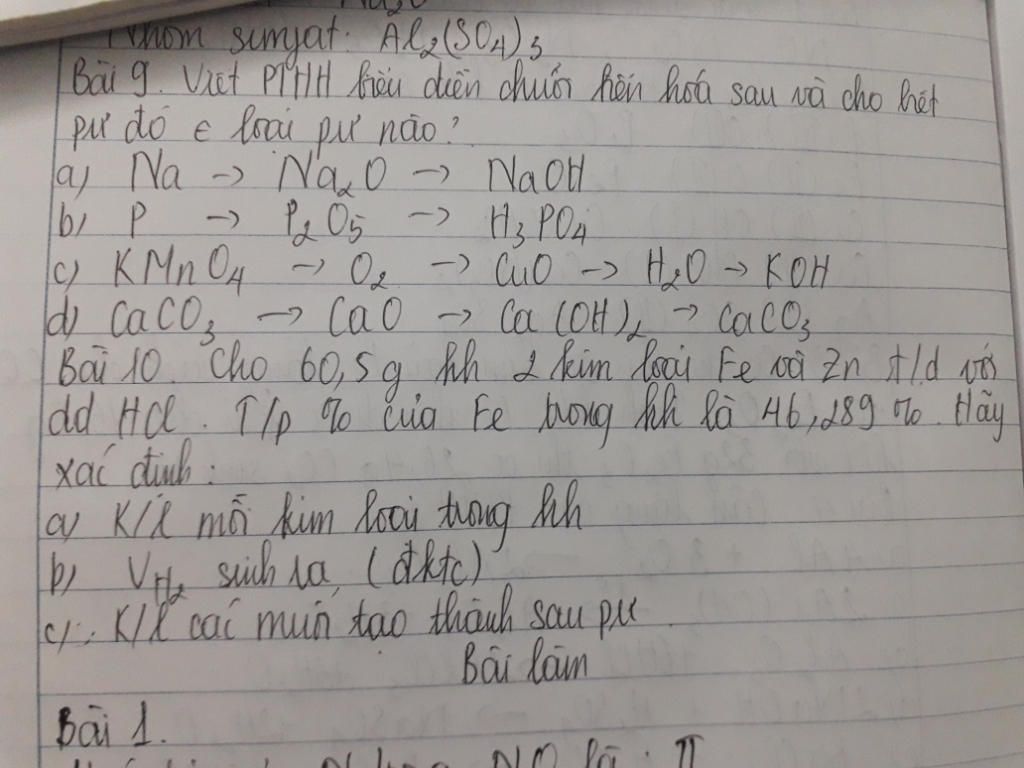 Na₂O
Nhóm sunfat: Al₂(SO₄)₃
Bài 9. Viết PTHH biểu diễn chuỗi biến hoá sau và cho biết
pư đó ∈ loại pư nào?
a) Na -> Na₂O -> NaOH
b) P -> P₂O₅ -> H₃PO₄
c) KMnO₄ -> O₂ -> CuO -> H₂O -> KOH
d) CaCO₃ -> CaO -> Ca(OH)₂ -> CaCO₃
Bài 10. Cho 60,5g hh 2 kim loại Fe và Zn t/d với
dd HCl. T/p % của Fe trong hh là 46,289 %. Hãy
xác định:
a) K/l mỗi kim loại trong hh
b) V_H₂ sinh ra (đktc)
c) K/l các muối tạo thành sau pư
Bài làm
Bài 1.
NO là: II